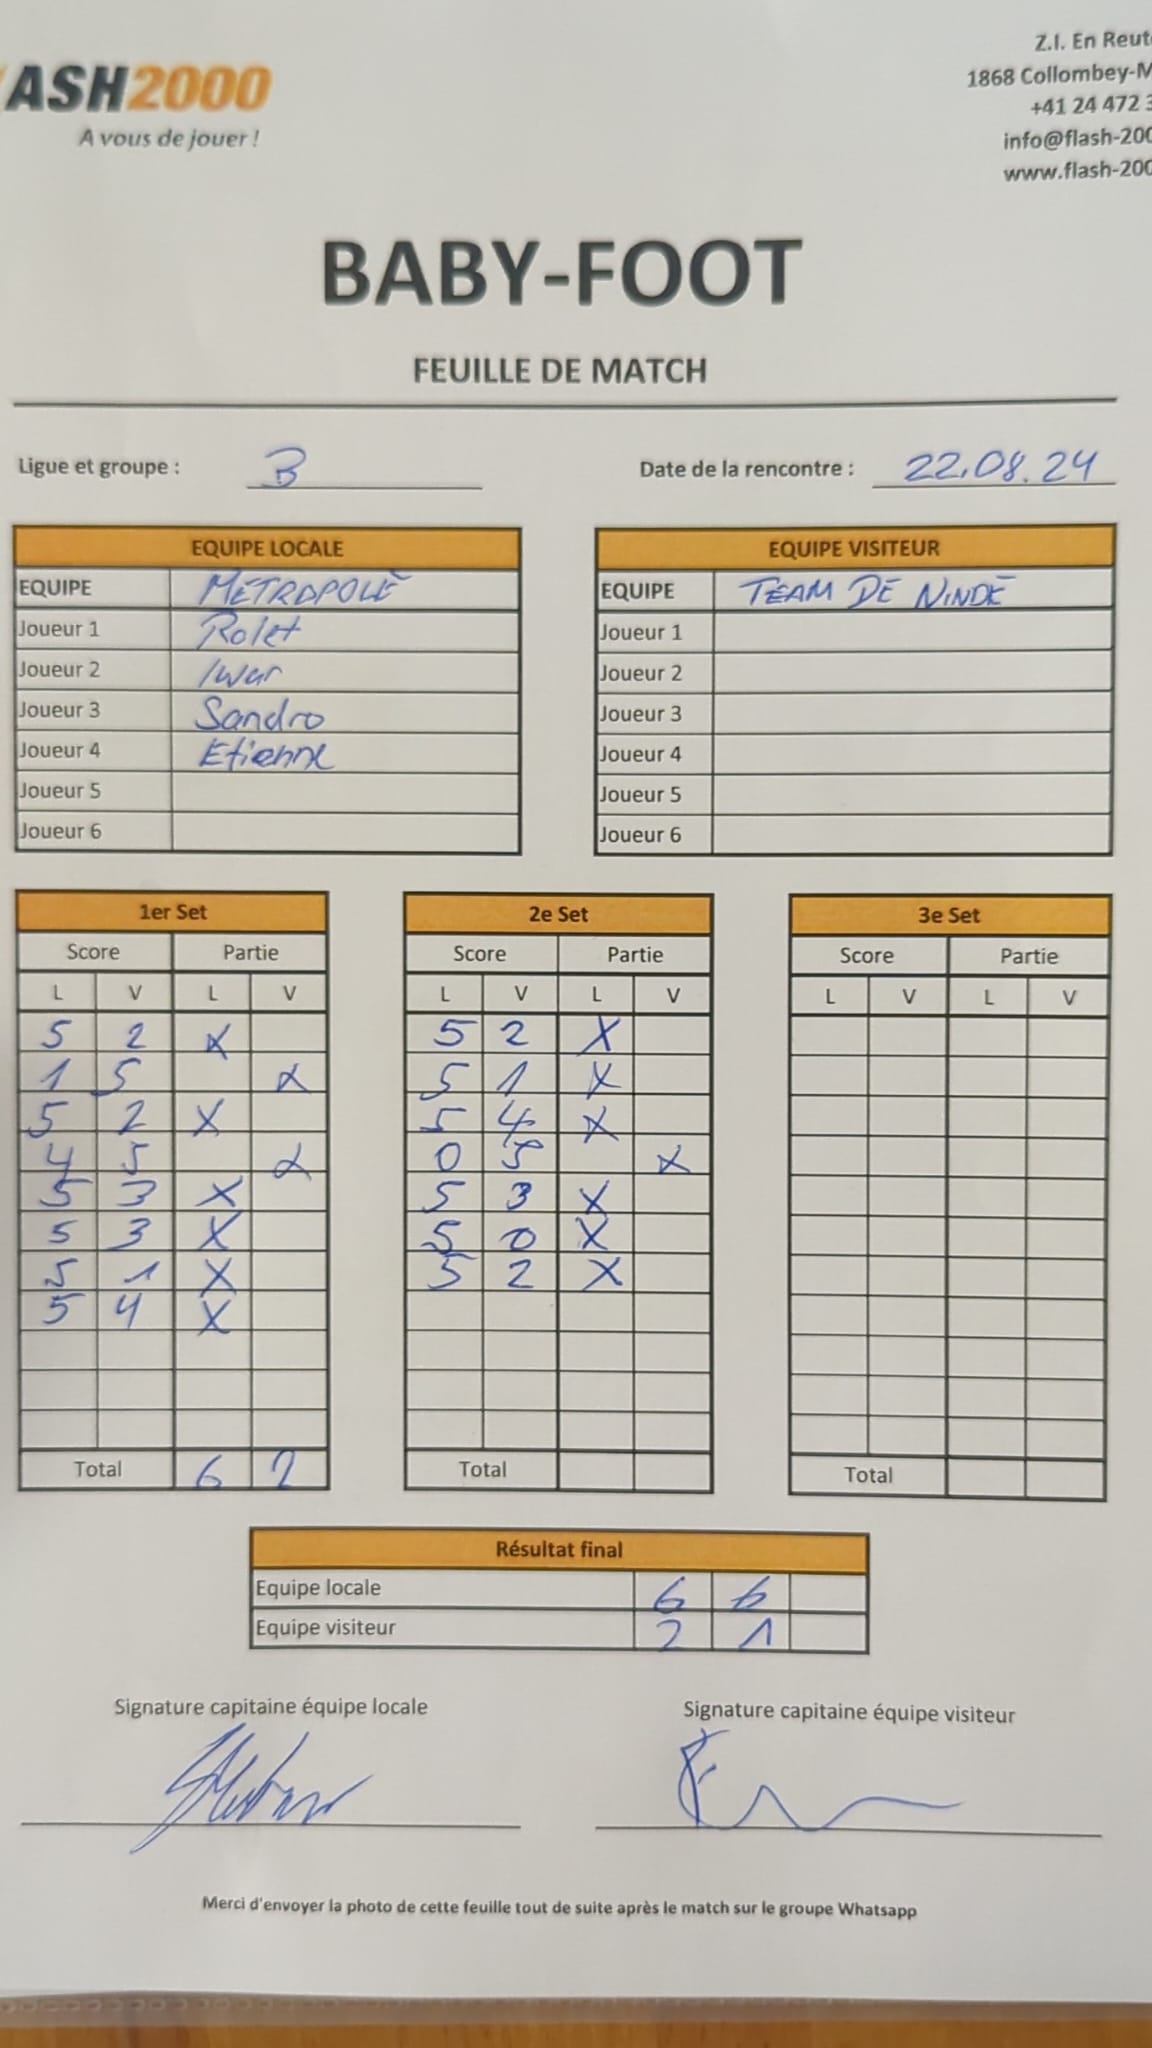 ASH2000
A vous de jouer !
Z.I. En Reut
1868 Collombey-M
+41 24 472 3
info@flash-200
www.flash-200
BABY-FOOT
FEUILLE DE MATCH
Ligue et groupe : B
Date de la rencontre : 22.08.24
EQUIPE LOCALE
EQUIPE METROPOLE
Joueur 1 Rolet
Joueur 2 Iwar
Joueur 3 Sandro
Joueur 4 Etienne
Joueur 5
Joueur 6
EQUIPE VISITEUR
EQUIPE TEAM DE NINDE
Joueur 1
Joueur 2
Joueur 3
Joueur 4
Joueur 5
Joueur 6
1er Set
Score Partie
L V L V
5 2 X
1 5 X
5 2 X
4 5 X
5 3 X
5 3 X
5 1 X
5 4 X
Total 6 2
2e Set
Score Partie
L V L V
5 2 X
5 1 X
5 4 X
0 5 X
5 3 X
5 0 X
5 2 X
Total
3e Set
Score Partie
L V L V
Total
Résultat final
Equipe locale 6 6
Equipe visiteur 2 1
Signature capitaine équipe locale
Signature capitaine équipe visiteur
Merci d'envoyer la photo de cette feuille tout de suite après le match sur le groupe Whatsapp